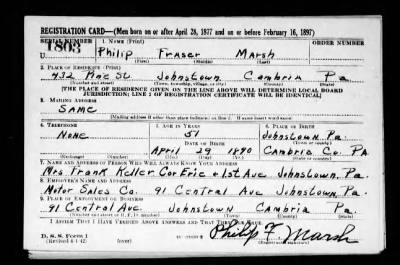 REGISTRATION CARD—(Men born on or after April 28, 1877 and on or before February 16, 1897)
SERIAL NUMBER 1. NAME (Print) ORDER NUMBER
U 1803 Philip Fraser Marsh
(First) (Middle) (Last)
2. PLACE OF RESIDENCE (Print)
432 Pine St Johnstown Cambria Pa.
(Number and street) (Town, township, village, or city) (County) (State)
[THE PLACE OF RESIDENCE GIVEN ON THE LINE ABOVE WILL DETERMINE LOCAL BOARD
JURISDICTION; LINE 2 OF REGISTRATION CERTIFICATE WILL BE IDENTICAL]
3. MAILING ADDRESS
SAME
[Mailing address if other than place indicated on line 2. If same insert word same]
4. TELEPHONE 5. AGE IN YEARS 6. PLACE OF BIRTH
None 51 Johnstown Pa.
DATE OF BIRTH (Town or county)
April 29 1890 Cambria Co. Pa
(Exchange) (Number) (Mo.) (Day) (Yr.) (State or country)
7. NAME AND ADDRESS OF PERSON WHO WILL ALWAYS KNOW YOUR ADDRESS
Mrs Frank Keller Cor Erie + 1st Ave Johnstown Pa.
8. EMPLOYER'S NAME AND ADDRESS
Motor Sales Co. 91 Central Ave Johnstown Pa.
9. PLACE OF EMPLOYMENT OR BUSINESS
91 Central Ave Johnstown Cambria Pa.
(Number and street or R. F. D. number) (Town) (County) (State)
I AFFIRM THAT I HAVE VERIFIED ABOVE ANSWERS AND THAT THEY ARE TRUE.
D. S. S. Form 1
(Revised 4-1-42) (over) Philip F. Marsh
(Registrant's signature)